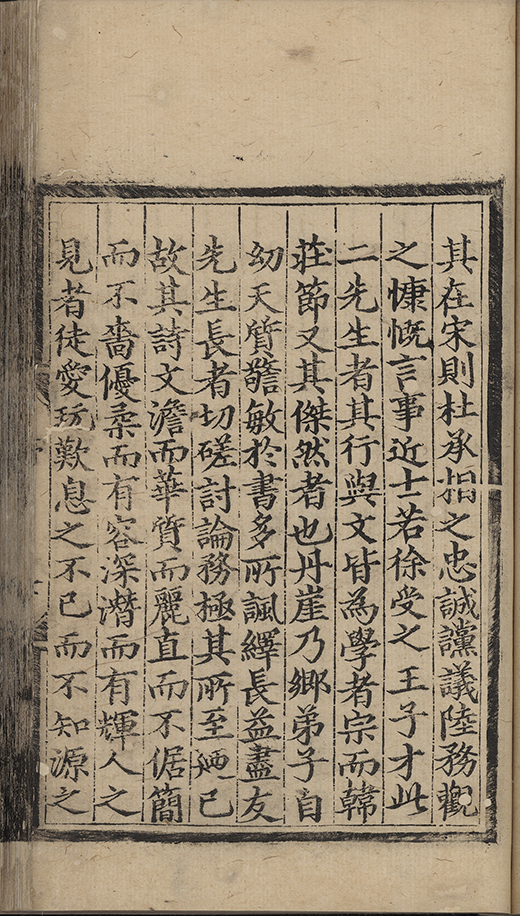 其在宋則杜承相之忠誠讜議陸務觀
之慷慨言事近士若徐受之王子才此
二先生者其行與文皆為學者宗而韓
莊節又其傑然者也丹崖乃鄉弟子自
幼天質警敏於書多所諷繹長益盡友
先生長者切磋討論務極其所至廼已
故其詩文澹而華質而麗直而不倨簡
而不嗇優柔而有容深潛而有輝人之
見者徒愛玩歎息之不已而不知源之